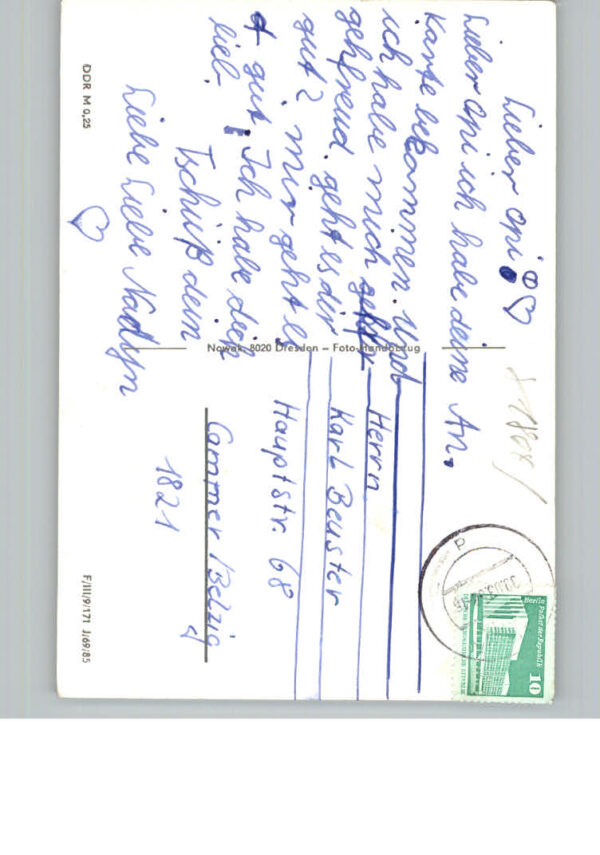 Lieber Opi
Lieber Opi ich habe deine An.
Karte bekommen. Und
ich habe mich
gehfreud. geht es dir
gut? mir geht es
gut. Ich habe dich
lieb.
Tschüß dein
Liebe Liebe Nadlyn
DDR M 0,25
Nowak, 8020 Dresden – Foto-Handabzug
Herrn
Karl Beuster
Hauptstr. 68
Cammer / Belzig
1821
F/III/9/171 J/69/85
Berlin Palast der Republik
10